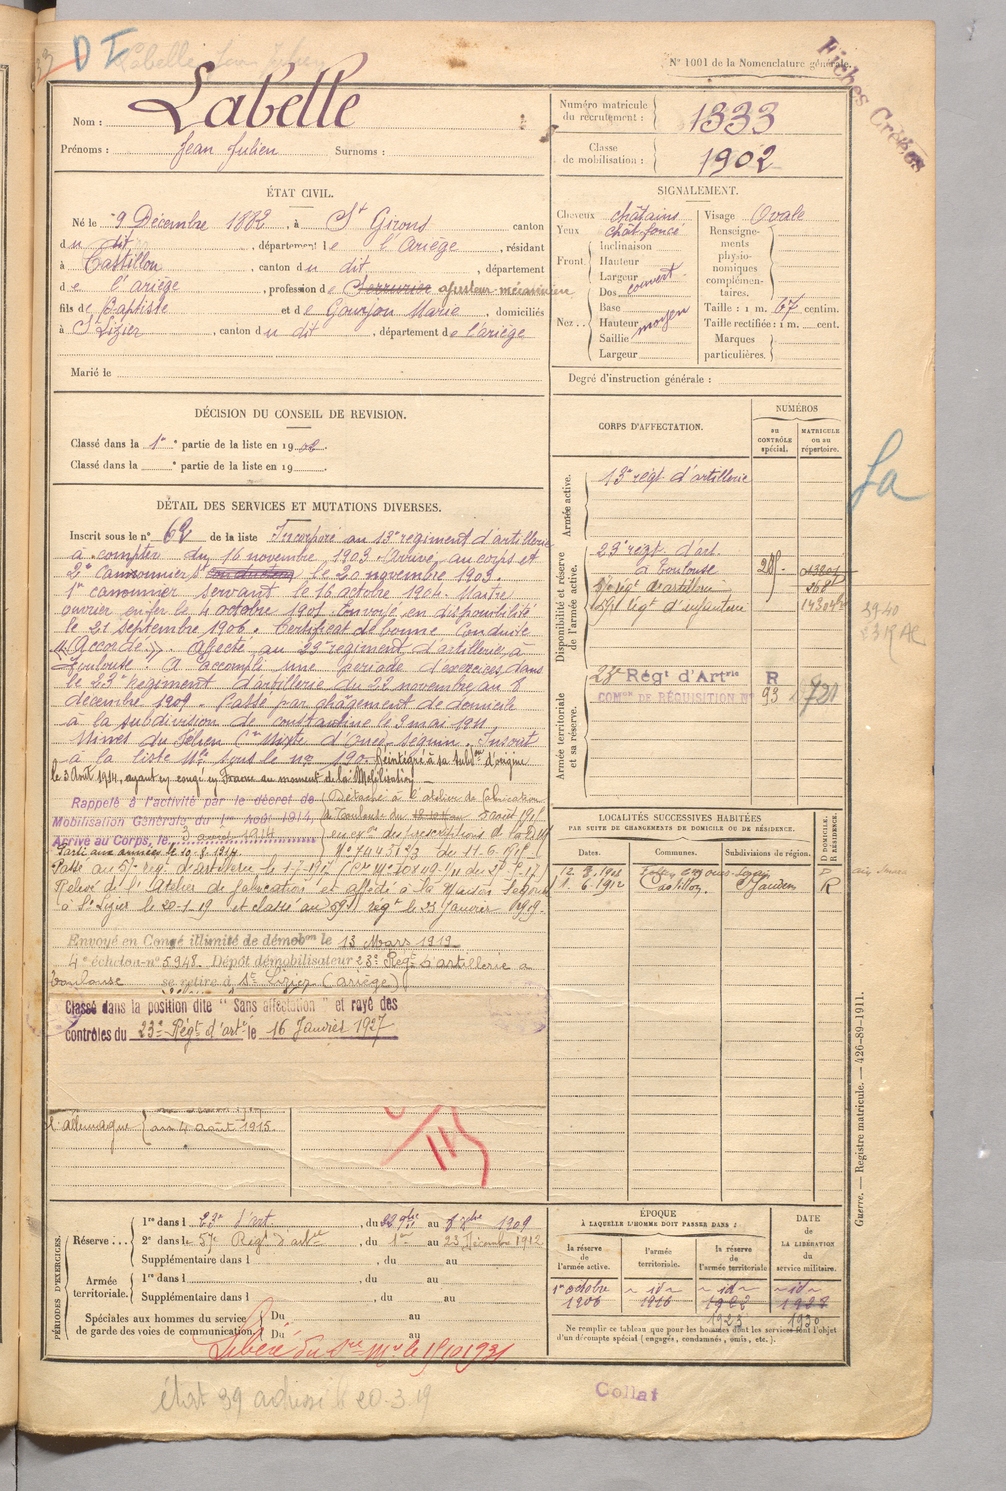 D I
Labelle Jean Julien
N° 1001 de la Nomenclature générale.
Fiches Créées
Nom : Labelle
Prénoms : Jean Julien Surnoms :
Numéro matricule du recrutement : 1333
Classe de mobilisation : 1902
ÉTAT CIVIL.
Né le 9 Décembre 1882, à St Girons canton
du dit, département de l'Ariège, résidant
à Castillon, canton du dit, département
de l'ariège, profession de Serrurier ajusteur-mécanicien
fils de Baptiste et de Gouzon Marie, domiciliés
à St Lizier, canton du dit, département de l'ariège
Marié le
SIGNALEMENT.
Cheveux châtains
Yeux chât foncé
Front
Inclinaison
Hauteur
Largeur
Nez
Dos couvert
Base
Hauteur moyen
Saillie
Largeur
Visage Ovale
Renseignements physionomiques complémentaires.
Taille : 1 m. 67 centim.
Taille rectifiée : 1 m. cent.
Marques particulières.
Degré d'instruction générale :
DÉCISION DU CONSEIL DE REVISION.
Classé dans la 1re partie de la liste en 1903
Classé dans la e partie de la liste en 19
DÉTAIL DES SERVICES ET MUTATIONS DIVERSES.
Inscrit sous le n° 62 de la liste Incorporé au 13e régiment d'artillerie
à compter du 16 novembre 1903. Arrivé au corps et
2e canonnier st conducteur le 20 novembre 1903.
1er canonnier servant le 16 octobre 1904. Maître
ouvrier en fer le 4 octobre 1905. Envoyé en disponibilité
le 21 septembre 1906. Certificat de bonne Conduite
« Accordé ». Affecté au 23e régiment d'artillerie, à
Toulouse. A accompli une période d'exercices dans
le 23e Régiment d'artillerie du 22 novembre au 8
décembre 1909. Passé par changement de domicile
à la subdivision de Constantine le 9 mai 1911,
Mines du Félten Cne Mixte d'Oued-Séguin. Inscrit
à la liste Mle sous le no 190. Réintégré à sa Subdon d'origine
le 3 Août 1914, ayant en congé en France au moment de la Mobilisation
Rappelé à l'activité par le décret de
Mobilisation Générale du 1er Août 1914,
Arrivé au Corps, le 3 août 1914
Parti aux armées le 10-8-1914
Détaché à l'atelier de fabrication
de Toulouse du 5 août 1915
en exon des prescriptions de la D.M.
Passé au 57e Rég. d'artillerie le 1-7-1917
Relevé de l'Atelier de fabrication et affecté à la Maison
à St Lizier le 20-1-19 et classé au 59e régt le 23 Janvier 1919.
Envoyé en Congé illimité de démobon le 13 Mars 1919
4e échelon n° 5948. Dépôt démobilisateur 23e Régt d'artillerie à
Toulouse se retire à St Lizier (ariège)
Classé dans la position dite "Sans affectation" et rayé des
contrôles du 23e Régt d'arte le 16 Janvier 1927
l'Allemagne
au 4 août 1915
CORPS D'AFFECTATION.
NUMÉROS
au CONTRÔLE spécial.
MATRICULE ou au répertoire.
Armée active.
13e régt d'artillerie
Disponibilité et réserve de l'armée active.
23e régt d'art.
à Toulouse
57e régt d'artillerie
59e régt d'infanterie
Armée territoriale et sa réserve.
23e Régt d'Artrie R
COMon DE RÉQUISITION N° 93
La
LOCALITÉS SUCCESSIVES HABITÉES
PAR SUITE DE CHANGEMENTS DE DOMICILE OU DE RÉSIDENCE.
Dates.
Communes.
Subdivisions de région.
D DOMICILE. R RÉSIDENCE.
6. 1912 Castillon St Gaudens R
Guerre. — Registre matricule. — 426-89-1911.
PÉRIODES D'EXERCICES.
Réserve :
1re dans le 23e d'art. , du 22 9bre au 8 Xbre 1909
2e dans le 57e Régt d'artie , du 1er au 23 Décembre 1912
Supplémentaire dans l , du au
Armée territoriale.
1re dans l , du au
Supplémentaire dans l , du au
Spéciales aux hommes du service de garde des voies de communication.
Du au
Du au
Libéré du Sce Mre le 15.10.1931
ÉPOQUE
À LAQUELLE L'HOMME DOIT PASSER DANS :
la réserve de l'armée active.
l'armée territoriale.
la réserve de l'armée territoriale
DATE DE LA LIBÉRATION du service militaire.
1er octobre 1906
- id - 1916
- id - 1922
- id - 1928
Ne remplir ce tableau que pour les hommes dont les services font l'objet
d'un décompte spécial (engagés, condamnés, omis, etc.).
état 39 adressé le 20.3.19
Collat